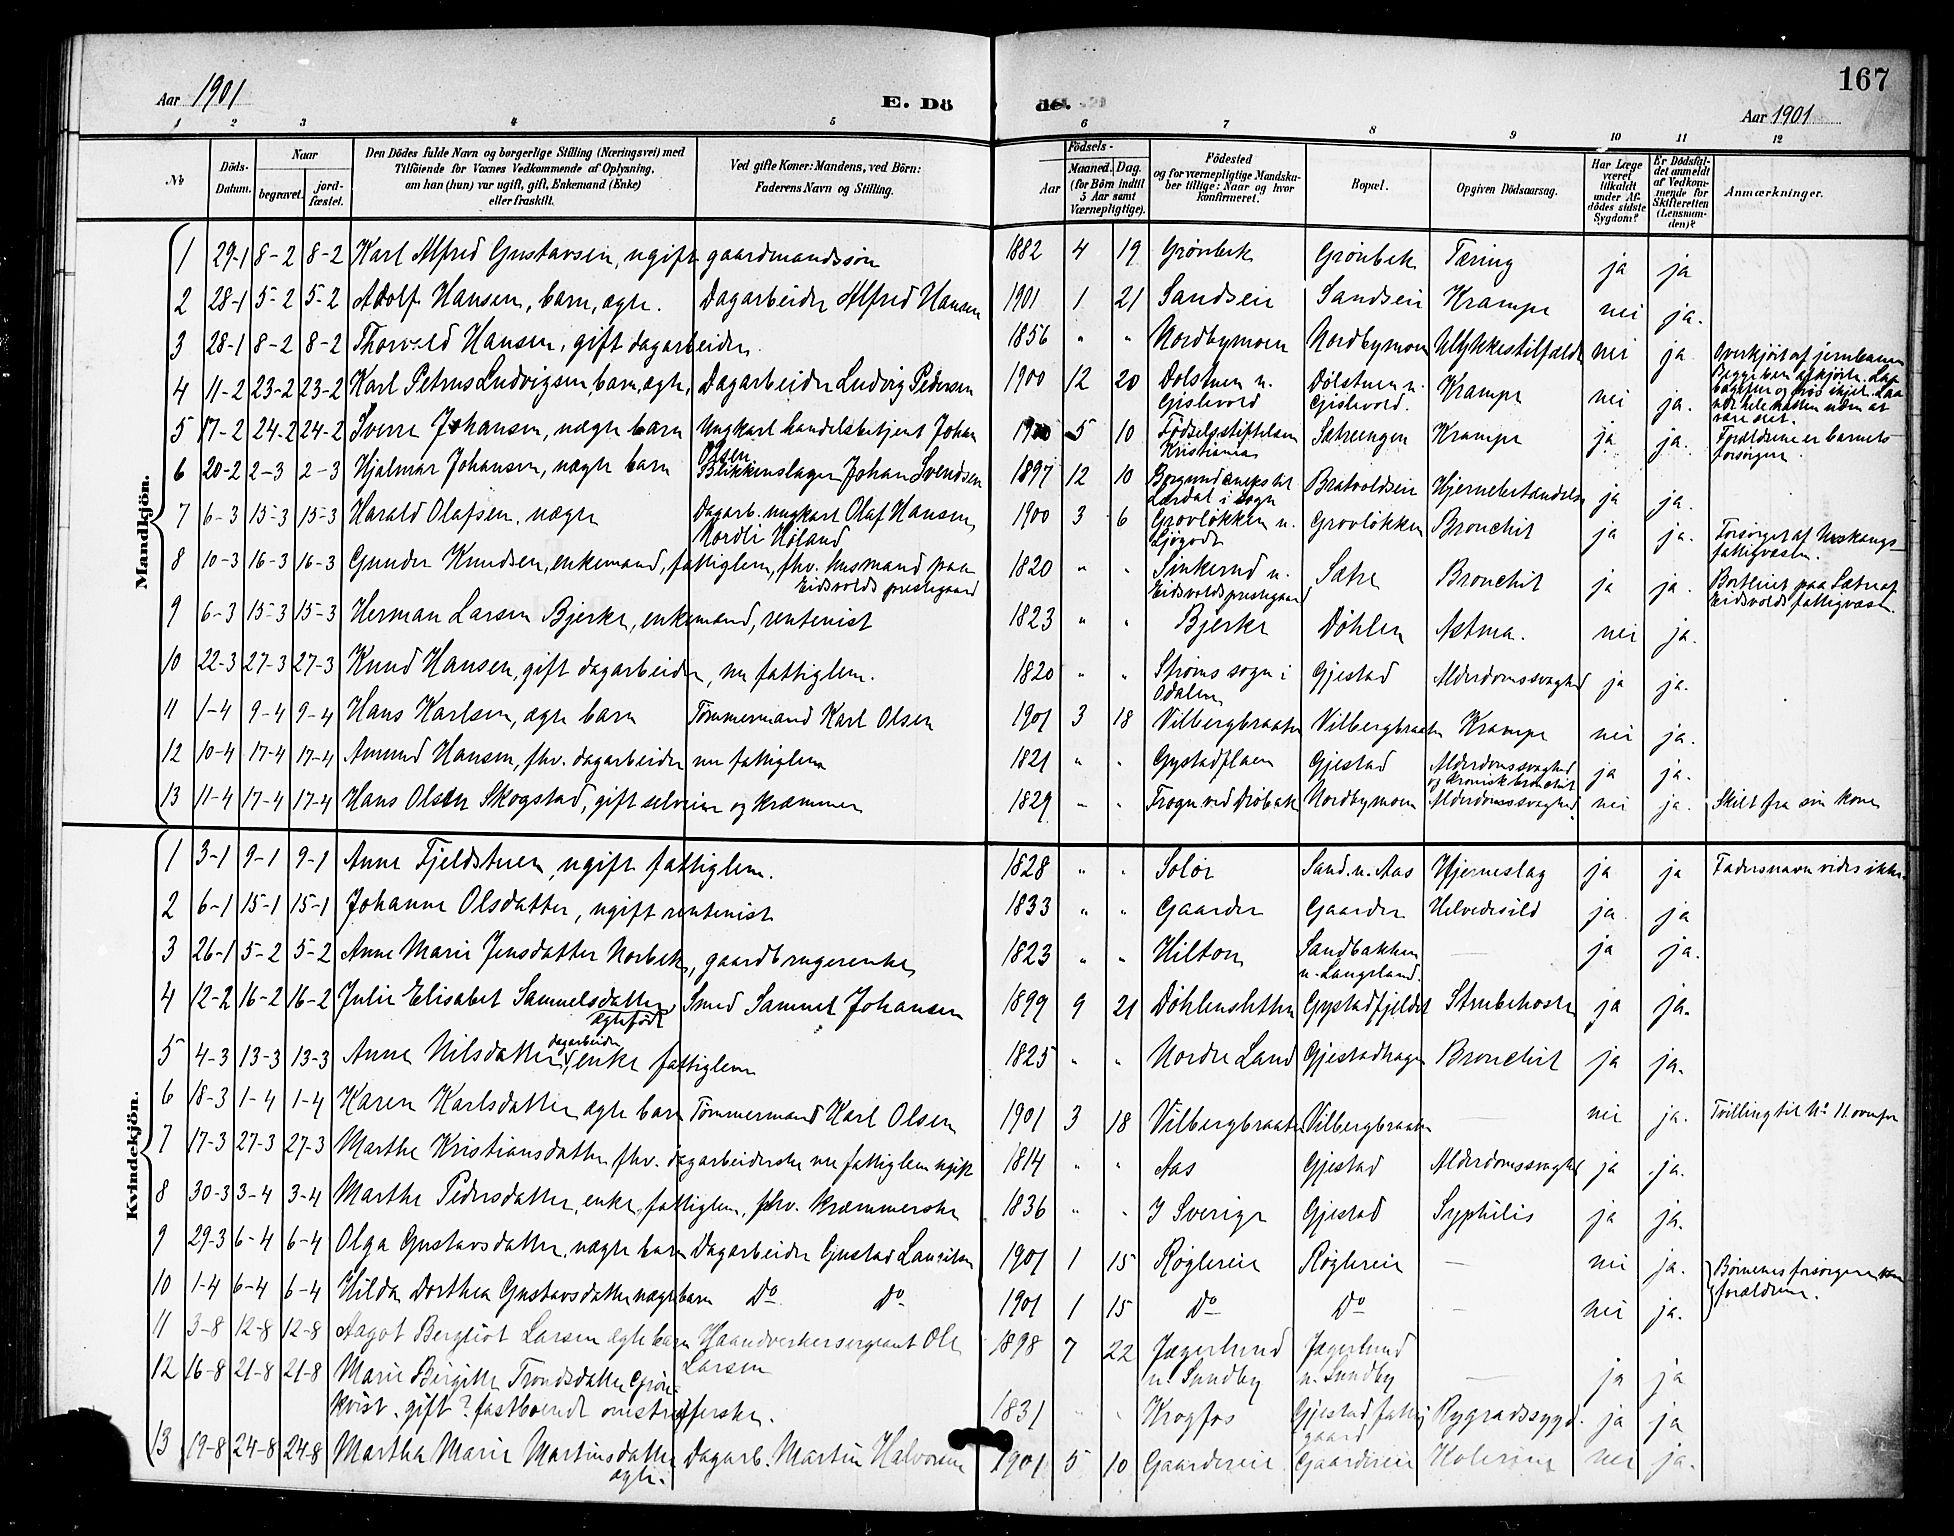 167
Aar 1901
E. Dö de.
Aar 1901
1 2 3 4 5 6 7 8 9 10 11 12
№
Döds-Datum.
Naar
begravet.
jord-fæstet.
Den Dödes fulde Navn og borgerlige Stilling (Næringsvei) med
Tilföiende for Voxnes Vedkommende af Oplysning,
om han (hun) var ugift, gift, Enkemand (Enke)
eller fraskilt.
Ved gifte Koner: Mandens, ved Börn:
Faderens Navn og Stilling.
Födsels-
Aar
Maaned. Dag.
(for Börn indtil
5 Aar samt
Værnepligtige).
Födested
og for værnepligtige Mandska-
ber tillige: Naar og hvor
konfirmeret.
Bopæl.
Opgiven Dödsaarsag.
Har Læge
været
tilkaldt
under Af-
dödes sidste
Sygdom?
Er Dödsfal-
det anmeldt
af Vedkom-
mende for
Skifteretten
(Lensman-
den)?
Anmærkninger.
Mandkjön.
1 29-1 8-2 8-2 Karl Alfred Gustavsen, ugift gaardmandssøn 1882 4 19 Grønbek Grønbek Tæring ja ja
2 28-1 5-2 5-2 Adolf Hansen, barn, ægte. Dagarbeider Alfred Hansen 1901 1 21 Sandseie Sandseie Krampe nei ja.
3 28-1 8-2 8-2 Thorvald Hansen, gift dagarbeider. 1856 " " Nordbymoen Nordbymoen Ulykkestilfælde nei ja Overkjørt af jernbanen
4 11-2 23-2 23-2 Karl Petrus Ludvigsen, barn, ægte, Dagarbeider Ludvig Pedersen 1900 12 20 Dølstuen u. Gislevold Dølstuen u. Gislevold. Krampe nei ja.
5 17-2 24-2 24-2 Sverre Johansen, uægte barn Ungkarl handelsbetjent Johan Olsen 1900 5 10 Fødselsstiftelsen Kristiania Sætreengen Krampe ja ja. Forældrene er barnets forsørgere
6 20-2 2-3 2-3 Hjalmar Johansen, uægte barn Blikkenslager Johan Svendsen 1897 12 10 Borgund Lærdal i Sogn Bratvoldseie Hjernebetændelse ja ja.
7 6-3 15-3 15-3 Harald Olafsen, uægte Dagarb. ungkarl Olaf Hansen, Nordli Høland 1900 3 6 Grovløkken u. Ljøgodt Grovløkken Bronchit ja ja. Forsørget af fattigvæsen.
8 10-3 16-3 16-3 Gunder Knudsen, enkemand, fattiglem, fhv. husmand paa Eidsvolds prestegaard 1820 " " Sinkerud u. Eidsvolds prestegaard Sætre Bronchit ja ja. Bortleiet paa Sætre af Eidsvolds fattigvæsen.
9 6-3 15-3 15-3 Herman Larsen Bjerke, enkemand, rentenist 1823 " " Bjerke Døhlen Astma. nei ja.
10 22-3 27-3 27-3 Knud Hansen, gift dagarbeider, nu fattiglem. 1820 " " Strøms sogn i Odalen Gjestad Alderdomssvaghed ja ja.
11 1-4 9-4 9-4 Hans Karlsen, ægte barn Tømmermand Karl Olsen 1901 3 18 Vilbergbraaten Vilbergbraaten Krampe nei ja.
12 10-4 17-4 17-4 Amund Hansen, fhv. dagarbeider nu fattiglem 1821 " " Gystadflaen Gjestad Alderdomssvaghed og kronisk bronchit ja ja.
13 11-4 17-4 17-4 Hans Olsen Skogstad, gift selveier og kræmmer 1829 " " Frogn ved Drøbak Nordbymoen Alderdomssvaghed. nei ja. Skilt fra sin kone
Kvindekjön.
1 3-1 9-1 9-1 Anne Fjeldstuen, ugift fattiglem. 1828 " " Solør Sand. u. Aas Hjerneslag ja ja Fadersnavn vides ikke.
2 6-1 15-1 15-1 Johanne Olsdatter, ugift rentenist 1833 " " Gaarder Gaarder Helvedesild ja. ja
3 26-1 5-2 5-2 Anne Marie Jensdatter Norbek, gaardbrugerenke 1823 " " Hilton Sandbakken u. Langeland. — ja ja.
4 12-2 16-2 16-2 Julie Elisabet Samuelsdatter ægtefødt Smed Samuel Johansen 1899 9 21 Døhlensletten Gystadfjeldet Strubehoste ja ja.
5 4-3 13-3 13-3 Anne Nilsdatter, dagarbeider enke fattiglem 1825 " " Nordre Land Gjestadhagen Bronchit ja ja.
6 18-3 1-4 1-4 Karen Karlsdatter ægte barn Tømmermand Karl Olsen 1901 3 18 Vilbergbraaten Vilbergbraaten — nei ja. Tvilling til No 11 ovenfor
7 17-3 27-3 27-3 Marthe Kristiansdatter fhv. dagarbeiderske nu fattiglem ugift 1814 " " Aas Gjestad Alderdomssvaghed ja ja.
8 30-3 3-4 3-4 Marthe Pedersdatter, enke, fattiglem, fhv. kræmmerske 1836 " " I Sverige Gjestad Syphilis ja ja.
9 29-3 6-4 6-4 Olga Gustavsdatter, uægte barn Dagarbeider Gustav Lauritsen 1901 1 15 Røglereie Røglereie — nei ja. Børnenes forsørgere
10 1-4 6-4 6-4 Hilda Dorthea Gustavsdatter uægte barn Do Do 1901 1 15 Do Do — nei ja. forældrene.
11 3-8 12-8 12-8 Aagot Bergliot Larsen ægte barn Haandverkersergeant Ole Larsen 1898 7 22 Jægerlund u. Sundby Jægerlund u. Sundby — ja ja
12 16-8 21-8 21-8 Marie Birgitte Trondsdatter Grønkvist. gift? fastboende omstrefferske. 1831 " " Krogfos Gjestad fattiggaard Rygradssygd. ja ja
13 19-8 24-8 24-8 Martha Marie Martinsdatter ægte. Dagarb. Martin Halvorsen 1901 5 10 Gaardereie Gaardereie Kolerine nei ja.